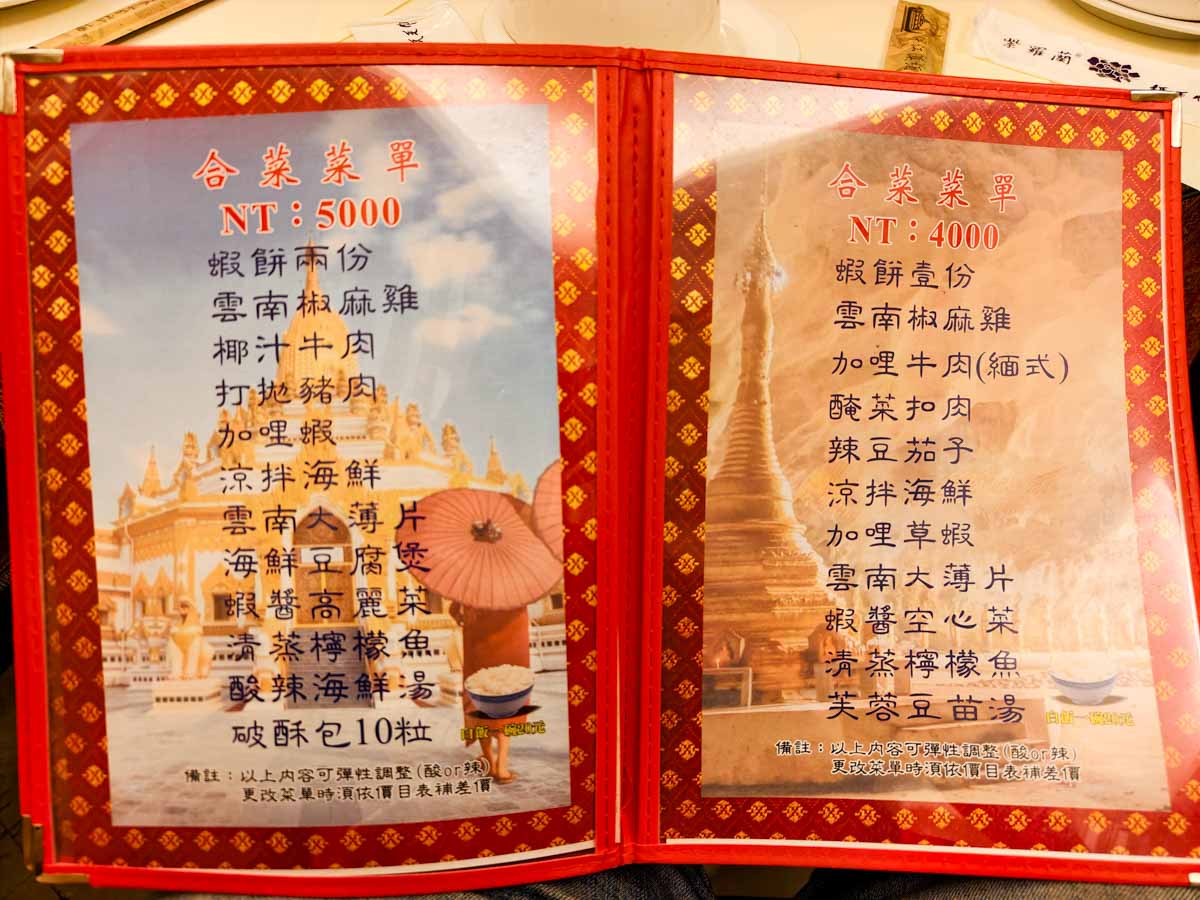 榮羅蘭
合菜菜單
NT：5000
蝦餅兩份
雲南椒麻雞
椰汁牛肉
打拋豬肉
加哩蝦
涼拌海鮮
雲南大薄片
海鮮豆腐煲
蝦醬高麗菜
清蒸檸檬魚
酸辣海鮮湯
破酥包10粒
白飯一碗20元
備註：以上內容可彈性調整(酸or辣)
更改菜單時湏依價目表補差價
合菜菜單
NT：4000
蝦餅壹份
雲南椒麻雞
加哩牛肉(緬式)
醃菜扣肉
辣豆茄子
涼拌海鮮
加哩草蝦
雲南大薄片
蝦醬空心菜
清蒸檸檬魚
芙蓉豆苗湯
白飯一碗20元
備註：以上內容可彈性調整(酸or辣)
更改菜單時湏依價目表補差價